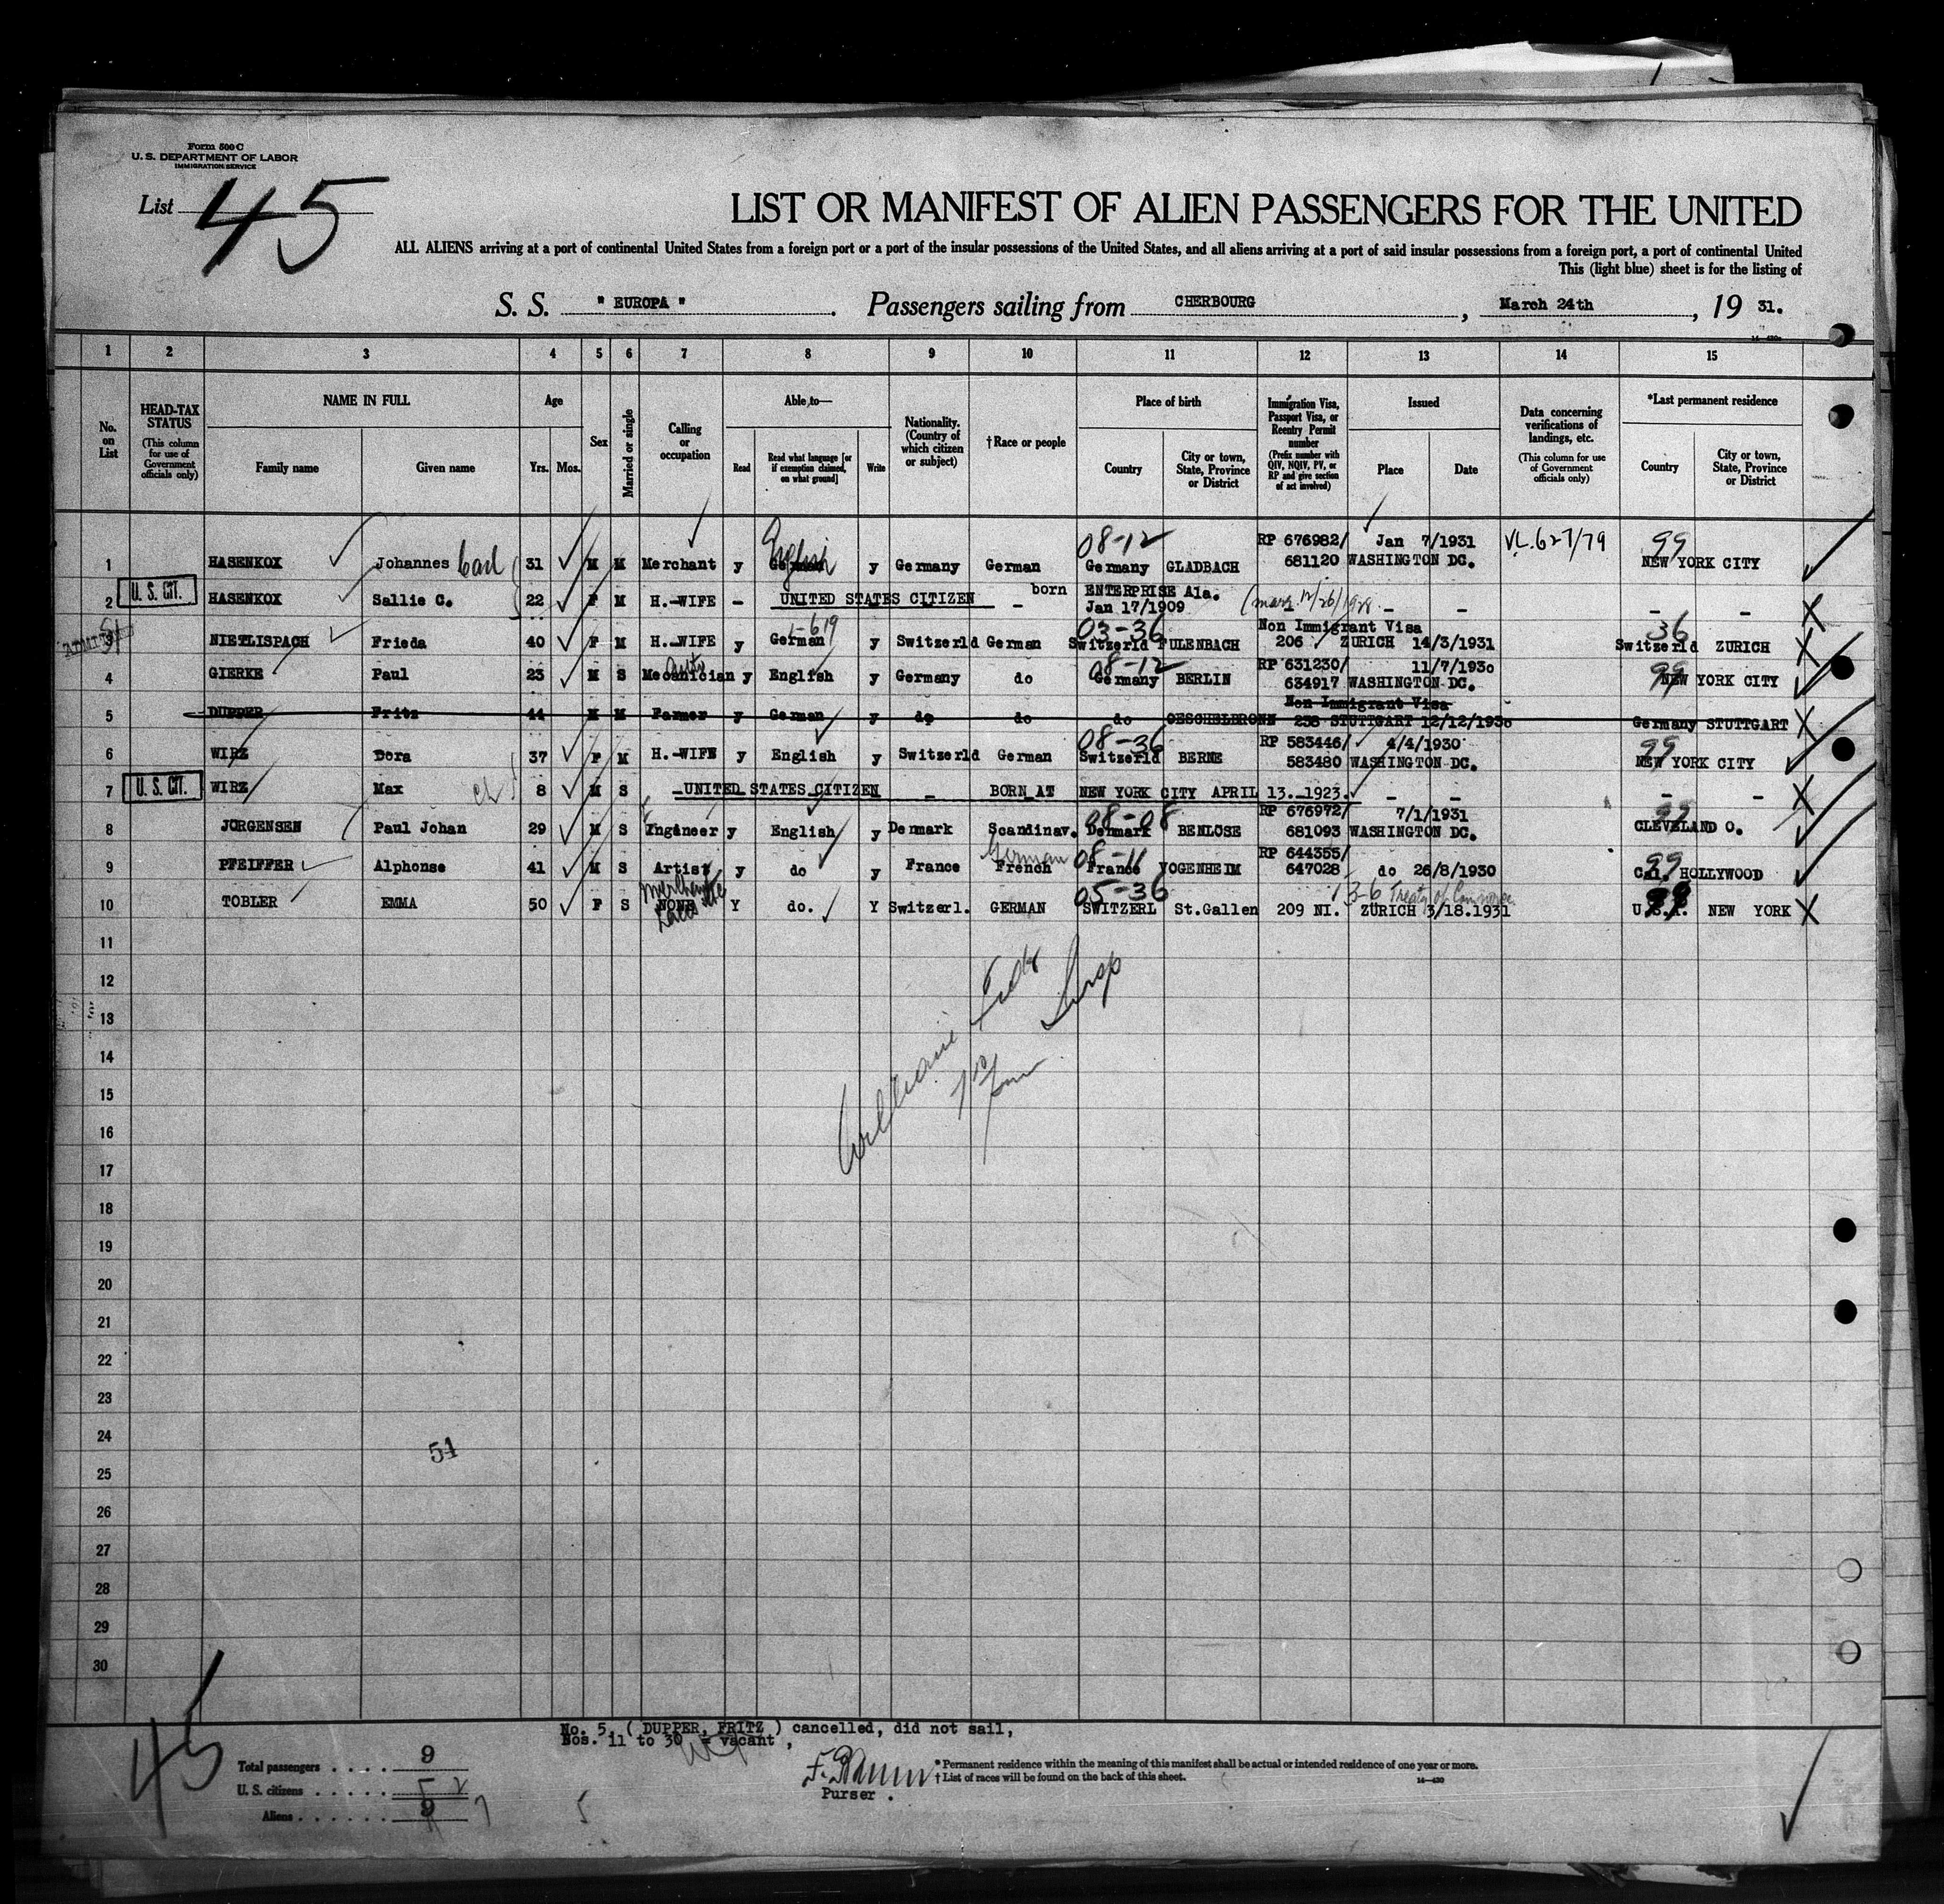 Form 500 C
U. S. DEPARTMENT OF LABOR
IMMIGRATION SERVICE
List 45
LIST OR MANIFEST OF ALIEN PASSENGERS FOR THE UNITED
ALL ALIENS arriving at a port of continental United States from a foreign port or a port of the insular possessions of the United States, and all aliens arriving at a port of said insular possessions from a foreign port, a port of continental United
This (light blue) sheet is for the listing of
S. S. " EUROPA " . Passengers sailing from CHERBOURG , March 24th , 19 31.
1 2 3 4 5 6 7 8 9 10 11 12 13 14 15
No. on List
HEAD-TAX STATUS (This column for use of Government officials only)
NAME IN FULL Family name Given name
Age Yrs. Mos.
Sex
Married or single
Calling or occupation
Able to— Read Read what language [or if exemption claimed, on what ground] Write
Nationality. (Country of which citizen or subject)
†Race or people
Place of birth Country City or town, State, Province or District
Immigration Visa, Passport Visa, or Reentry Permit number (Prefix number with QIV, NQIV, PV, or RP and give section of act involved)
Issued Place Date
Data concerning verifications of landings, etc. (This column for use of Government officials only)
*Last permanent residence Country City or town, State, Province or District
08-12 RP 676982/ Jan 7/1931 V.L. 627/79 99
1 HASENKOX Johannes Carl 31 M M Merchant y English y Germany German Germany GLADBACH 681120 WASHINGTON DC. NEW YORK CITY
U. S. CIT. born ENTERPRISE Ala.
2 HASENKOX Sallie C. 22 F M H.-WIFE - UNITED STATES CITIZEN - Jan 17/1909 (marr. 12/26/1928 - - - -
1-619 03-36 Non Immigrant Visa 36
3 NIETLISPACH Frieda 40 F M H._WIFE y German y Switzerld German Switzerld FULENBACH 206 ZURICH 14/3/1931 Switzerld ZURICH
auto 08-12 RP 631230/ 11/7/1930 99
4 GIERKE Paul 23 M S Mecanician y English y Germany do Germany BERLIN 634917 WASHINGTON DC. NEW YORK CITY
Non Immigrant Visa
5 DUPPER Fritz 44 M M Farmer y German y do do do OESCHELBRONN 238 STUTTGART 12/12/1930 Germany STUTTGART
08-36 RP 583446/ 4/4/1930 99
6 WIRZ Dora 37 F M H.-WIFE y English y Switzerld German Switzerld BERNE 583480 WASHINGTON DC. NEW YORK CITY
U. S. CIT.
7 WIRZ Max 8 M S UNITED STATES CITIZEN - BORN AT NEW YORK CITY APRIL 13. 1923. - - - -
08-08 RP 676972/ 7/1/1931 99
8 JORGENSEN Paul Johan 29 M S Engineer y English y Denmark Scandinav. Denmark BENLOSE 681093 WASHINGTON DC. CLEVELAND O.
German 08-11 RP 644355/ 99
9 PFEIFFER Alphonse 41 M S Artist y do y France French France YOGENHEIM 647028 do 26/8/1930 Cal. HOLLYWOOD
05-36 3-6 Treaty of Commerce 99
10 TOBLER EMMA 50 F S NONE Y do. Y Switzerl. GERMAN SWITZERL St.Gallen 209 NI. ZURICH 3/18.1931 U.S.A. NEW YORK
11
12
13
14
15
16
17
18
19
20
21
22
23
24
51
25
26
27
28
29
30
45
No. 5, ( DUPPER, FRITZ ) cancelled, did not sail,
Nos. 11 to 30 = vacant ,
Total passengers . . . . 9
U. S. citizens . . . . . 2
Aliens . . . . . . 9 7
5
Purser .
* Permanent residence within the meaning of this manifest shall be actual or intended residence of one year or more.
† List of races will be found on the back of this sheet.
14—430